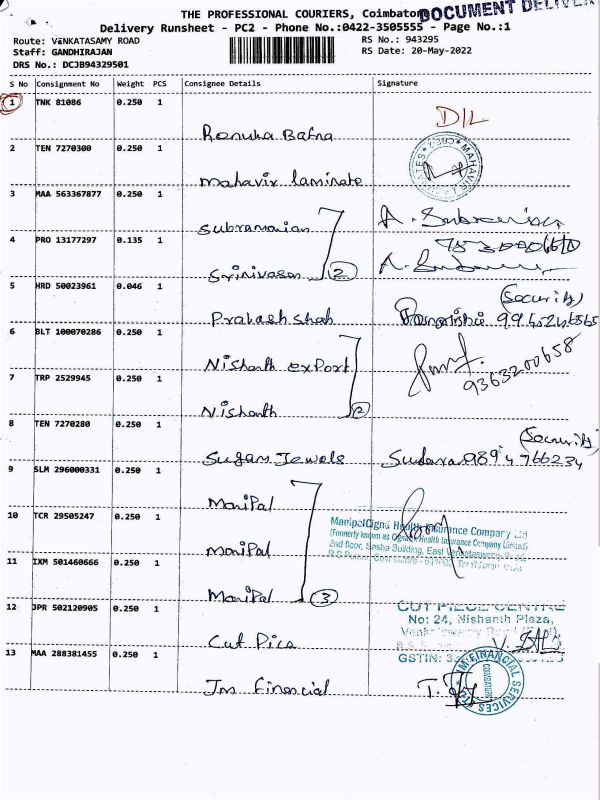 THE PROFESSIONAL COURIERS, Coimbator
DOCUMENT DELIVER
Delivery Runsheet - PC2 - Phone No.:0422-3505555 - Page No.:1
Route: VENKATASAMY ROAD
RS No.: 943295
Staff: GANDHIRAJAN
RS Date: 20-May-2022
DRS No.: DCJB94329501
S No Consignment No Weight PCS Consignee Details Signature
1 TNK 81086 0.250 1
Renuka Bafna D/L
2 TEN 7270300 0.250 1
Mahavir laminate
3 MAA 563367877 0.250 1
Subramanian
4 PRO 13177297 0.135 1
Srinivasan 2
5 HRD 50023961 0.046 1
(Security)
Prakash shah
6 BLT 100070286 0.250 1
Nishanth export 9363200658
7 TRP 2529945 0.250 1
Nishanth 2
8 TEN 7270280 0.250 1
(Security)
Sugam Jewels 9894766234
9 SLM 296000331 0.250 1
Manipal
10 TCR 29505247 0.250 1
ManipalCigna Health Insurance Company Ltd
(Formerly known as Cigna Health Insurance Company Limited)
Manipal
2nd floor, Sasha Building, East
11 IXM 501460666 0.250 1
Manipal 3
12 JPR 502120905 0.250 1
CUT PIECE CENTRE
No: 24, Nishanth Plaza,
Cut Pics
13 MAA 288381455 0.250 1
GSTIN:
JM FINANCIAL SERVICES
Jm Financial